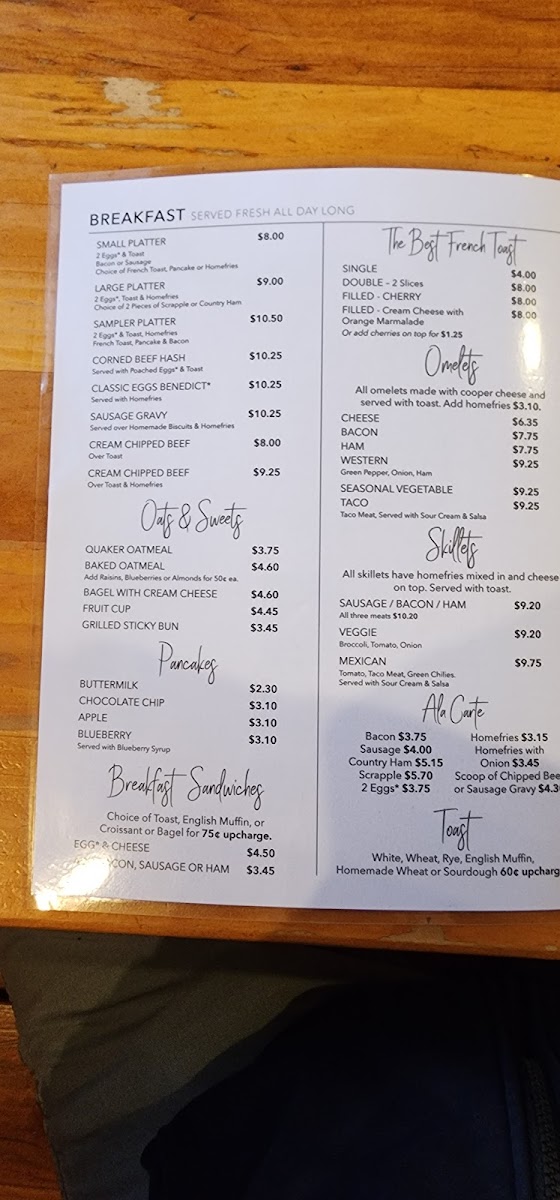 BREAKFAST SERVED FRESH ALL DAY LONG
SMALL PLATTER $8.00
2 Eggs* & Toast
Bacon or Sausage
Choice of French Toast, Pancake or Homefries
LARGE PLATTER $9.00
2 Eggs*, Toast & Homefries
Choice of 2 Pieces of Scrapple or Country Ham
SAMPLER PLATTER $10.50
2 Eggs* & Toast, Homefries
French Toast, Pancake & Bacon
CORNED BEEF HASH $10.25
Served with Poached Eggs* & Toast
CLASSIC EGGS BENEDICT* $10.25
Served with Homefries
SAUSAGE GRAVY $10.25
Served over Homemade Biscuits & Homefries
CREAM CHIPPED BEEF $8.00
Over Toast
CREAM CHIPPED BEEF $9.25
Over Toast & Homefries
Oats & Sweets
QUAKER OATMEAL $3.75
BAKED OATMEAL $4.60
Add Raisins, Blueberries or Almonds for 50¢ ea.
BAGEL WITH CREAM CHEESE $4.60
FRUIT CUP $4.45
GRILLED STICKY BUN $3.45
Pancakes
BUTTERMILK $2.30
CHOCOLATE CHIP $3.10
APPLE $3.10
BLUEBERRY $3.10
Served with Blueberry Syrup
Breakfast Sandwiches
Choice of Toast, English Muffin, or
Croissant or Bagel for 75¢ upcharge.
EGG* & CHEESE $4.50
SAUSAGE OR HAM $3.45
The Best French Toast
SINGLE $4.00
DOUBLE - 2 Slices $8.00
FILLED - CHERRY $8.00
FILLED - Cream Cheese with $8.00
Orange Marmalade
Or add cherries on top for $1.25
Omelets
All omelets made with cooper cheese and
served with toast. Add homefries $3.10.
CHEESE $6.35
BACON $7.75
HAM $7.75
WESTERN $9.25
Green Pepper, Onion, Ham
SEASONAL VEGETABLE $9.25
TACO $9.25
Taco Meat, Served with Sour Cream & Salsa
Skillets
All skillets have homefries mixed in and cheese
on top. Served with toast.
SAUSAGE / BACON / HAM $9.20
All three meats $10.20
VEGGIE $9.20
Broccoli, Tomato, Onion
MEXICAN $9.75
Tomato, Taco Meat, Green Chilies.
Served with Sour Cream & Salsa
Ala Carte
Bacon $3.75
Sausage $4.00
Country Ham $5.15
Scrapple $5.70
2 Eggs* $3.75
Homefries $3.15
Homefries with
Onion $3.45
Scoop of Chipped Bee
or Sausage Gravy $4.3
Toast
White, Wheat, Rye, English Muffin,
Homemade Wheat or Sourdough 60¢ upcharg